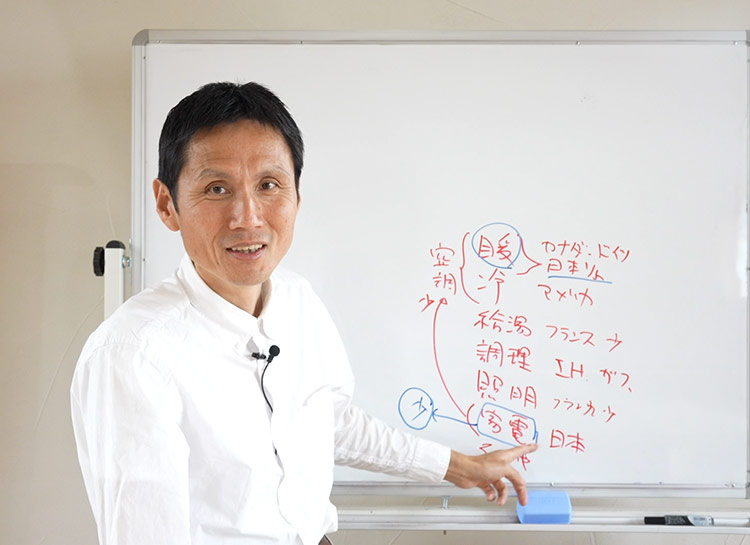 空調
少
暖 カナダ、ドイツ
日本少
冷 アメリカ
給湯 フランス 少
調理 IH ガス
照明 フランス 少
少 家電 日本
その他